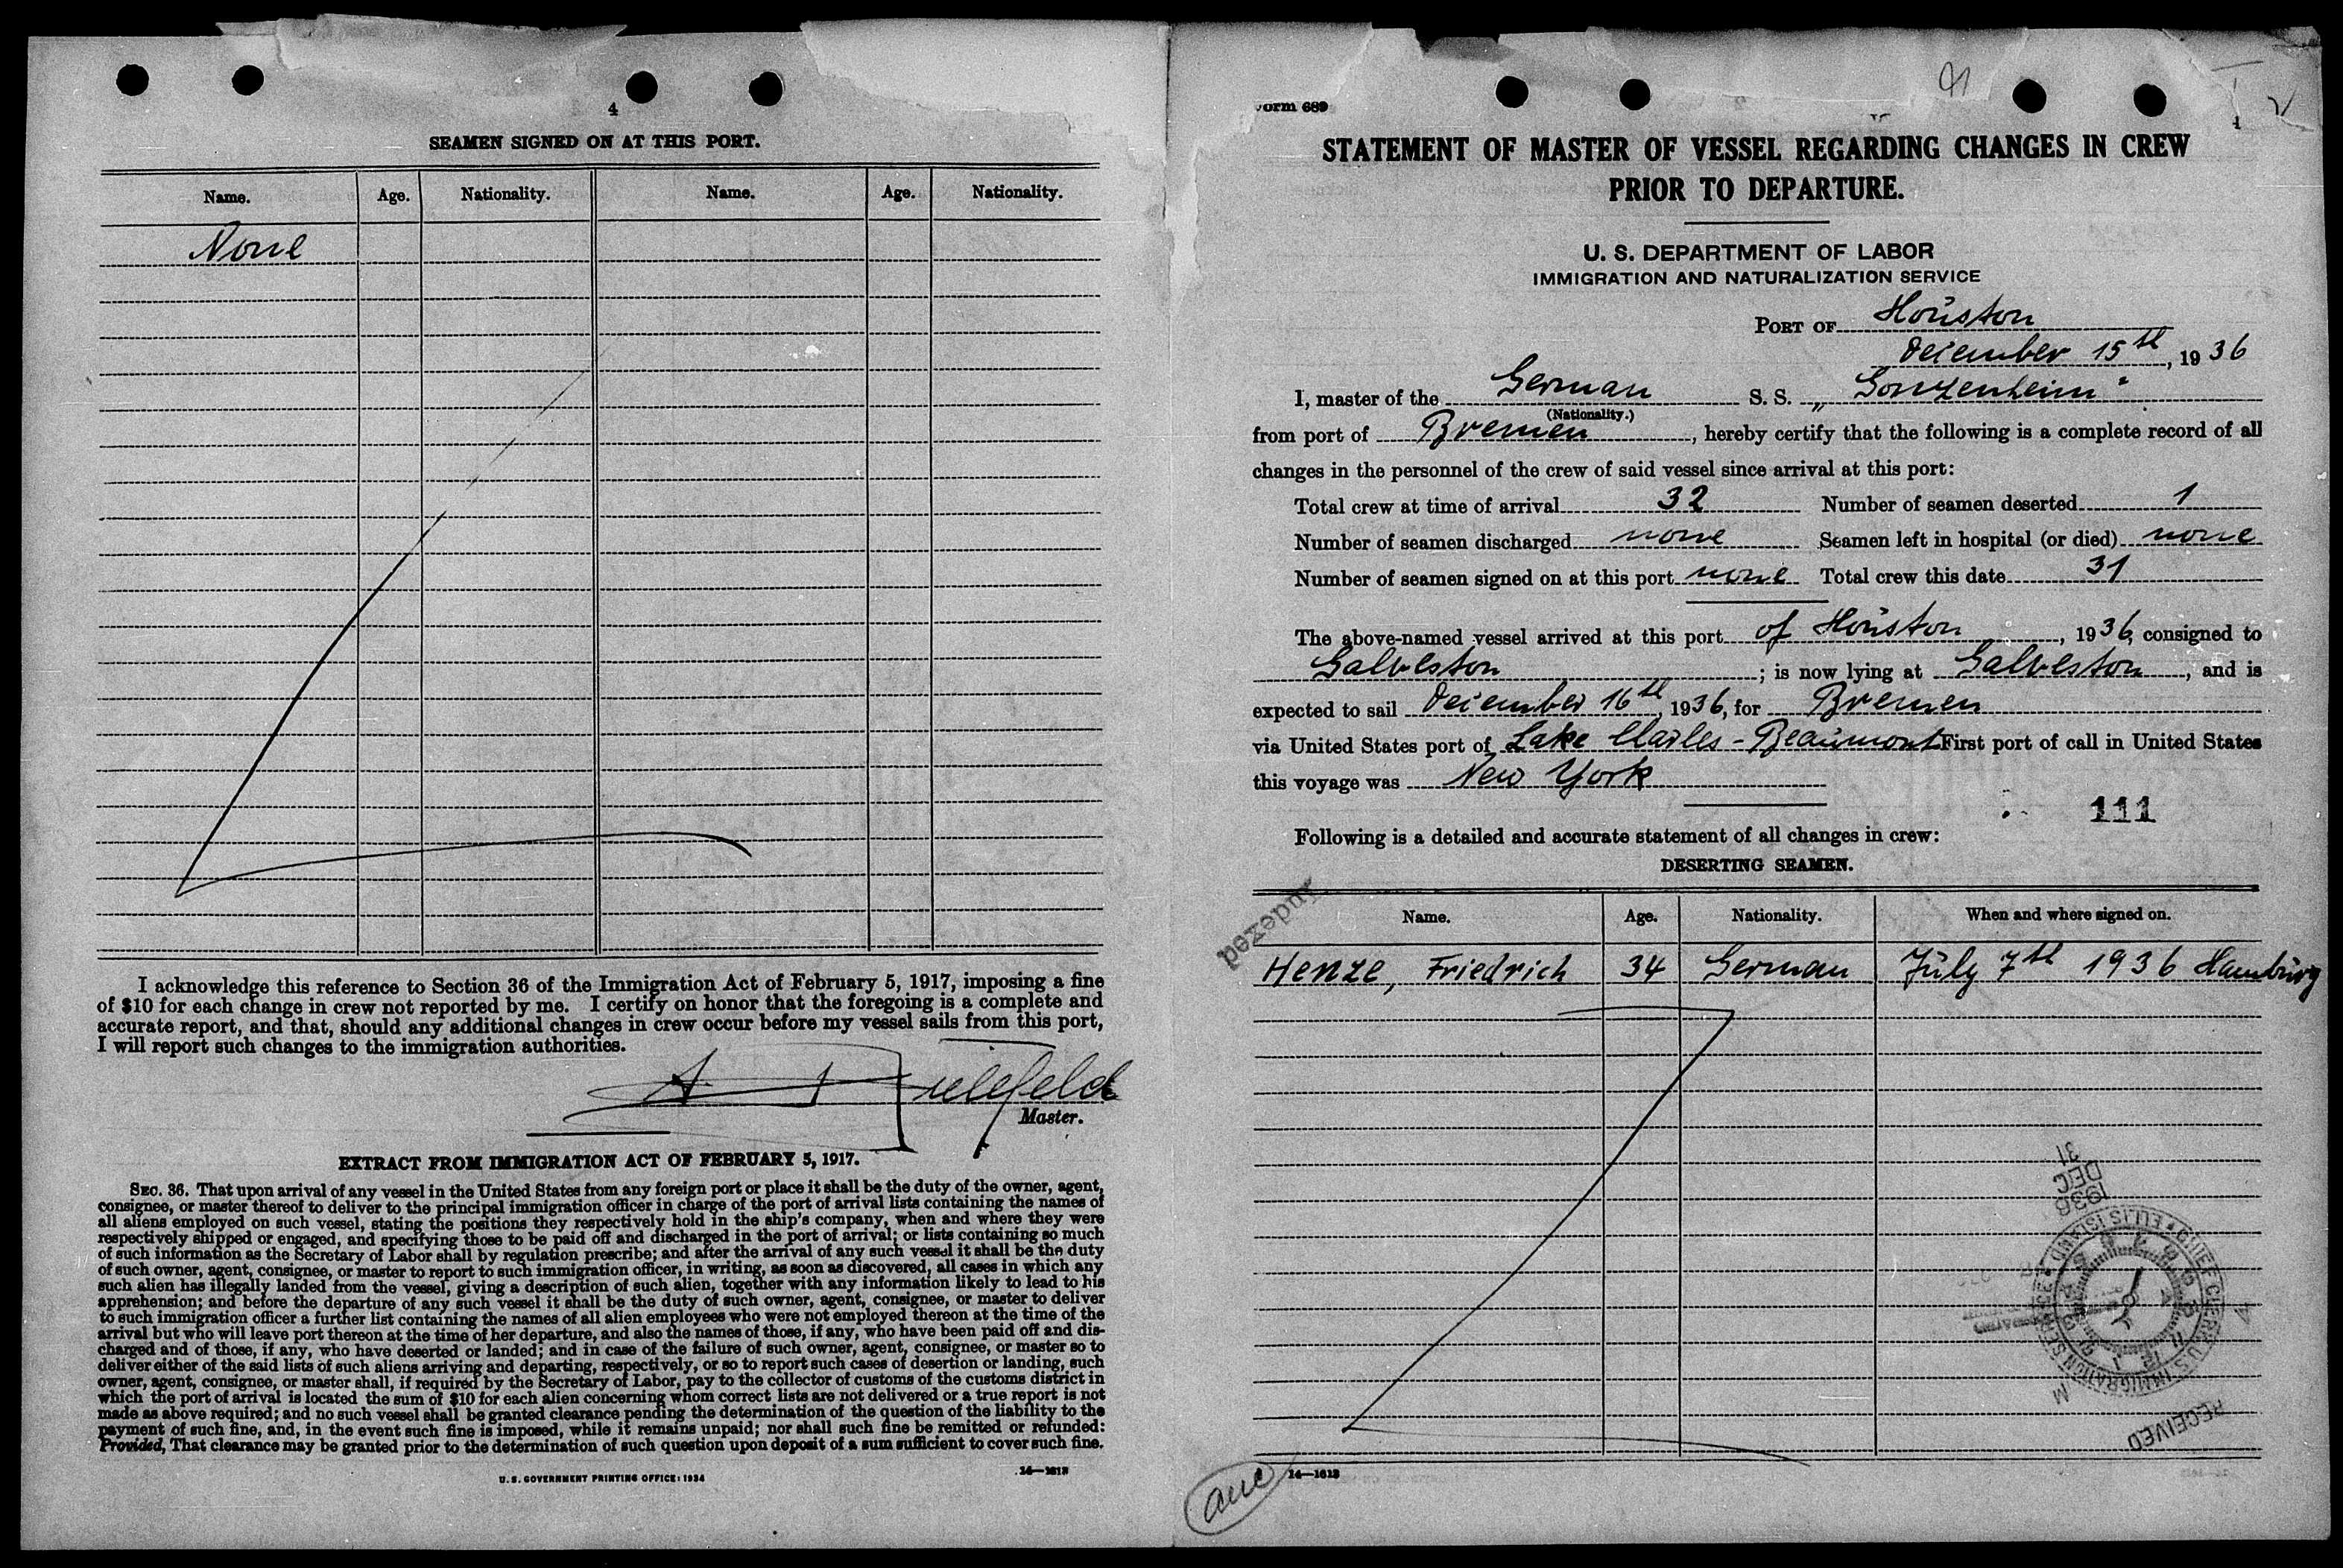 4
SEAMEN SIGNED ON AT THIS PORT.
Name. Age. Nationality. Name. Age. Nationality.
None
I acknowledge this reference to Section 36 of the Immigration Act of February 5, 1917, imposing a fine
of $10 for each change in crew not reported by me. I certify on honor that the foregoing is a complete and
accurate report, and that, should any additional changes in crew occur before my vessel sails from this port,
I will report such changes to the immigration authorities.
Bielefeld
Master.
EXTRACT FROM IMMIGRATION ACT OF FEBRUARY 5, 1917.
SEC. 36. That upon arrival of any vessel in the United States from any foreign port or place it shall be the duty of the owner, agent,
consignee, or master thereof to deliver to the principal immigration officer in charge of the port of arrival lists containing the names of
all aliens employed on such vessel, stating the positions they respectively hold in the ship's company, when and where they were
respectively shipped or engaged, and specifying those to be paid off and discharged in the port of arrival; or lists containing so much
of such information as the Secretary of Labor shall by regulation prescribe; and after the arrival of any such vessel it shall be the duty
of such owner, agent, consignee, or master to report to such immigration officer, in writing, as soon as discovered, all cases in which any
such alien has illegally landed from the vessel, giving a description of such alien, together with any information likely to lead to his
apprehension; and before the departure of any such vessel it shall be the duty of such owner, agent, consignee, or master to deliver
to such immigration officer a further list containing the names of all alien employees who were not employed thereon at the time of the
arrival but who will leave port thereon at the time of her departure, and also the names of those, if any, who have been paid off and dis-
charged and of those, if any, who have deserted or landed; and in case of the failure of such owner, agent, consignee, or master so to
deliver either of the said lists of such aliens arriving and departing, respectively, or so to report such cases of desertion or landing, such
owner, agent, consignee, or master shall, if required by the Secretary of Labor, pay to the collector of customs of the customs district in
which the port of arrival is located the sum of $10 for each alien concerning whom correct lists are not delivered or a true report is not
made as above required; and no such vessel shall be granted clearance pending the determination of the question of the liability to the
payment of such fine, and, in the event such fine is imposed, while it remains unpaid; nor shall such fine be remitted or refunded:
Provided, That clearance may be granted prior to the determination of such question upon deposit of a sum sufficient to cover such fine.
U. S. GOVERNMENT PRINTING OFFICE: 1934
14—1613
Form 689
91
1
STATEMENT OF MASTER OF VESSEL REGARDING CHANGES IN CREW
PRIOR TO DEPARTURE.
U. S. DEPARTMENT OF LABOR
IMMIGRATION AND NATURALIZATION SERVICE
PORT OF Houston
December 15th, 1936
I, master of the German S. S. „Gonzenheim“
(Nationality.)
from port of Bremen, hereby certify that the following is a complete record of all
changes in the personnel of the crew of said vessel since arrival at this port:
Total crew at time of arrival 32 Number of seamen deserted 1
Number of seamen discharged none Seamen left in hospital (or died) none
Number of seamen signed on at this port none Total crew this date 31
The above-named vessel arrived at this port of Houston, 1936, consigned to
Galveston; is now lying at Galveston, and is
expected to sail December 16th, 1936, for Bremen
via United States port of Lake Charles - Beaumont First port of call in United States
this voyage was New York
111
Following is a detailed and accurate statement of all changes in crew:
DESERTING SEAMEN.
Indexed
Name. Age. Nationality. When and where signed on.
Henze, Friedrich 34 German July 7th 1936 Hamburg
1936
DEC
31
CHIEF CLERK U.S. IMMIGRATION SERVICE • ELLIS ISLAND
RECEIVED
14—1613